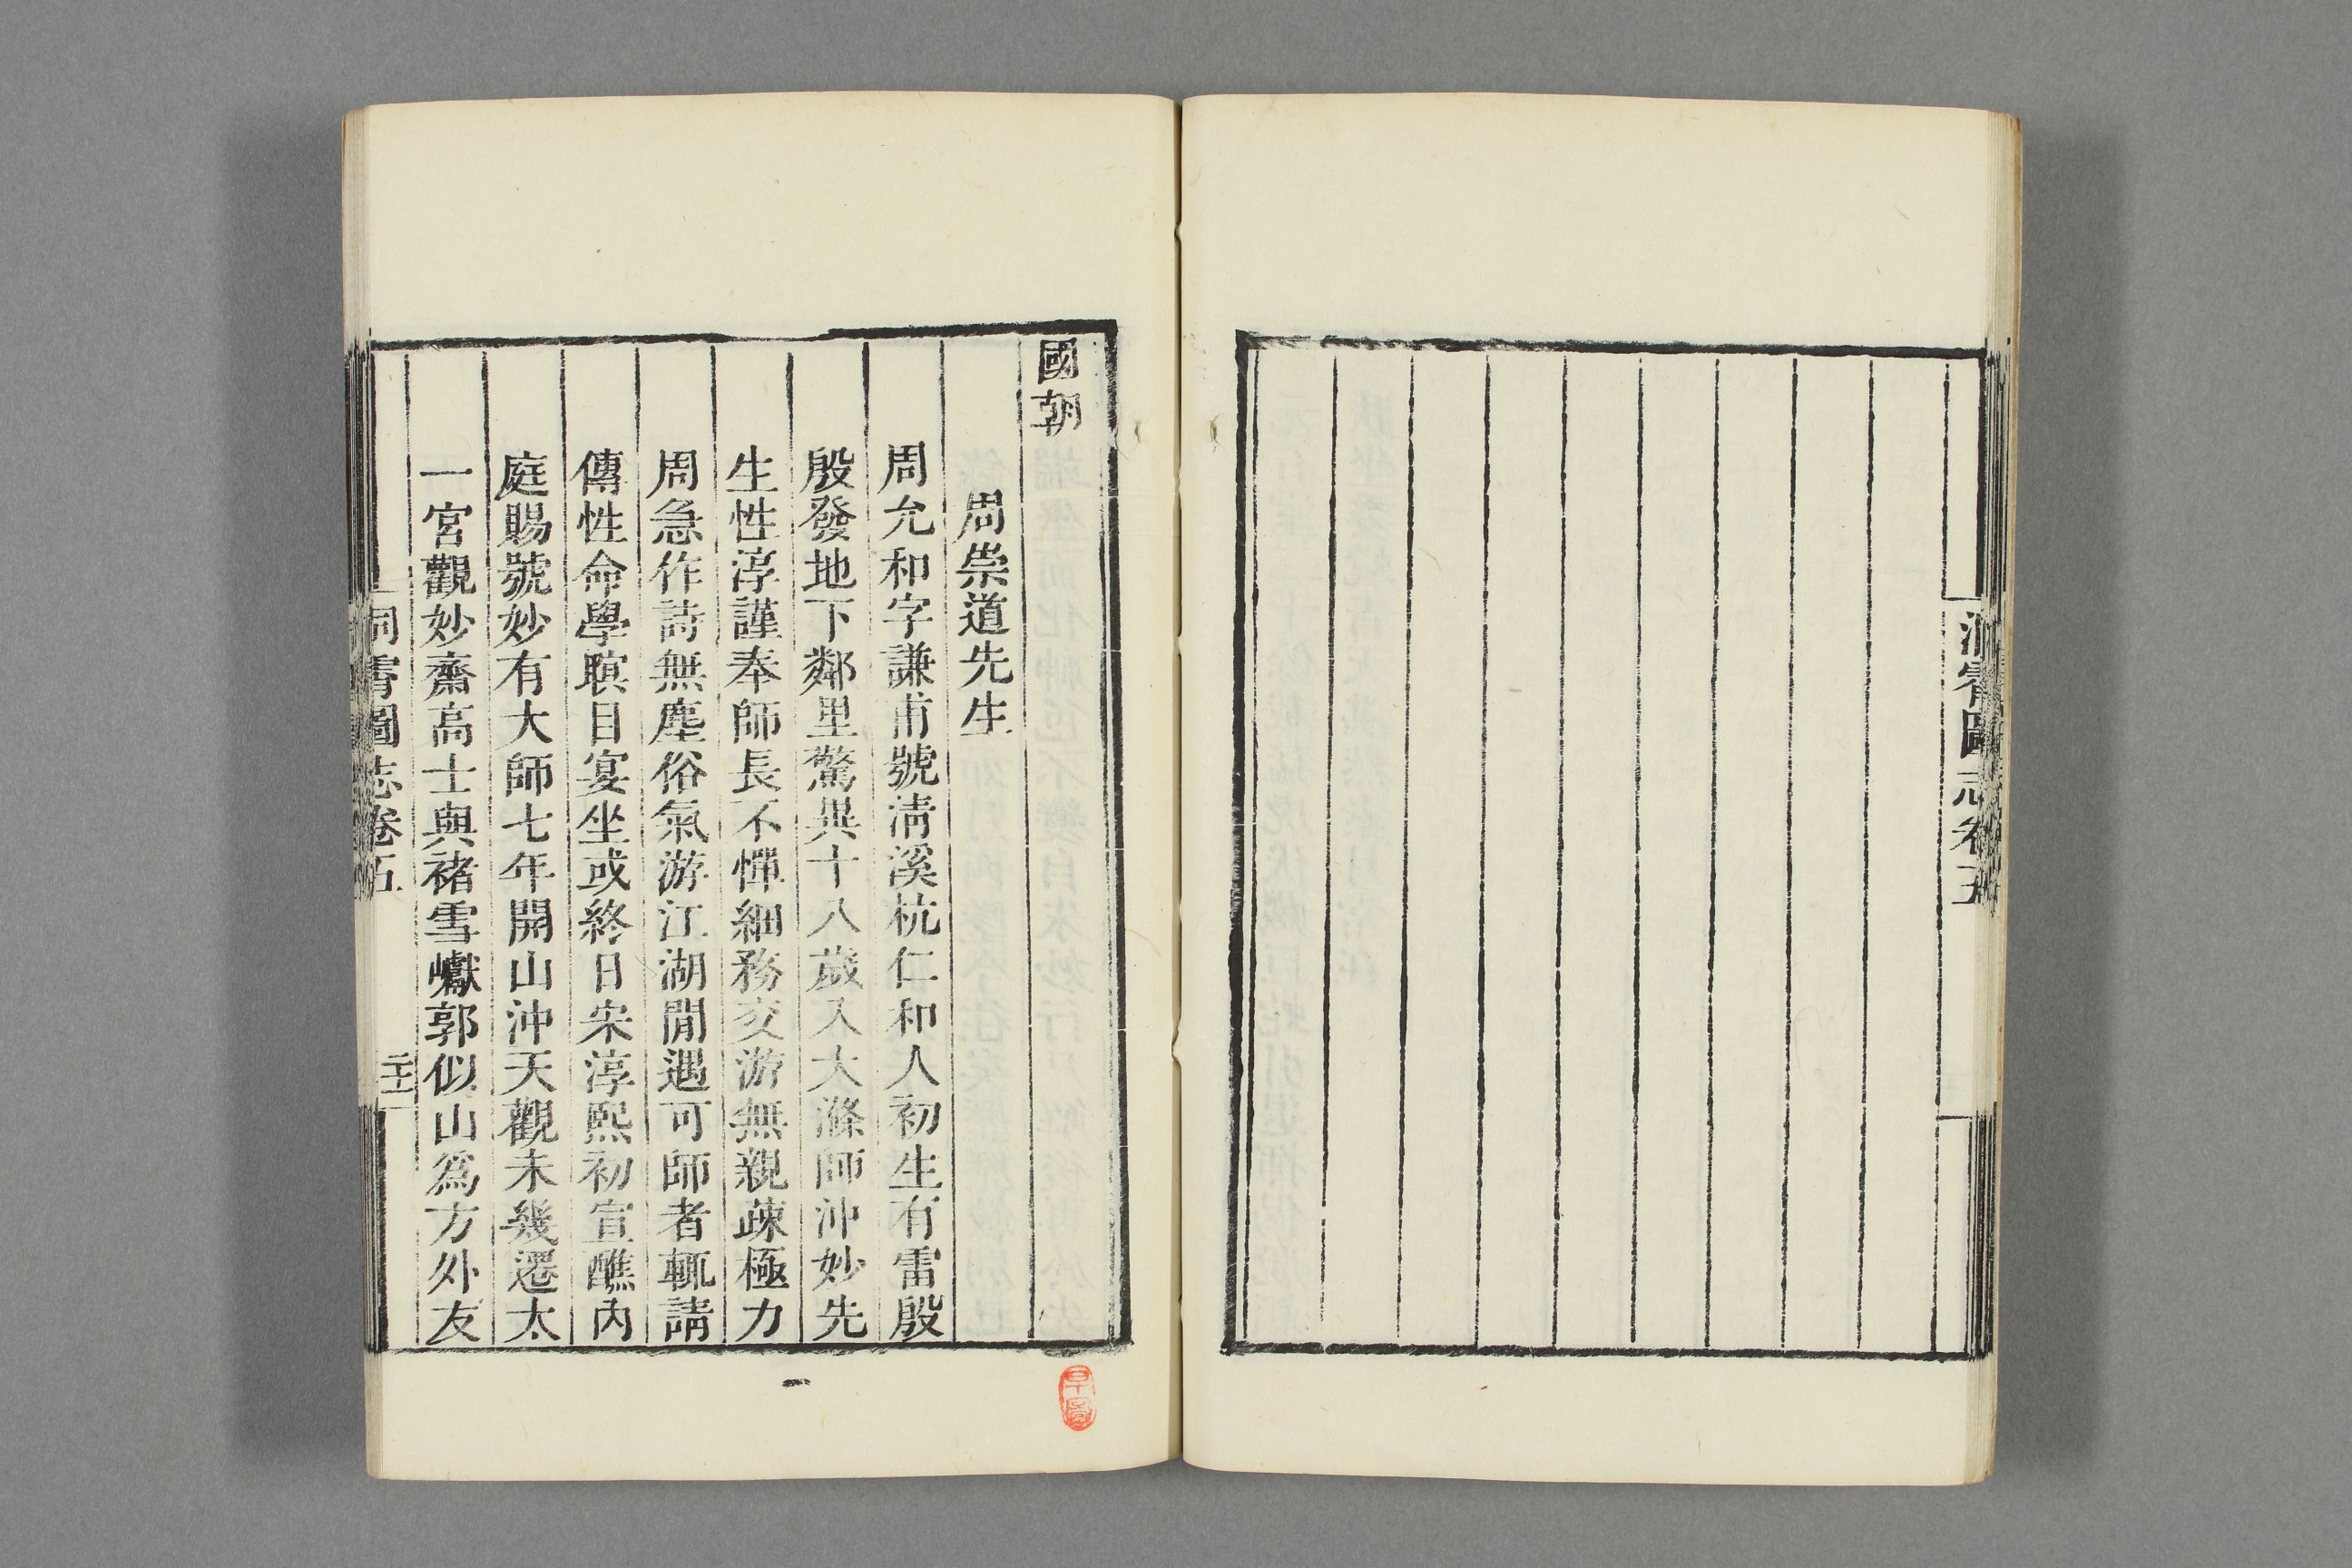 洞霄圖志卷五
國朝
周崇道先生
周允和字謙甫號淸溪杭仁和人初生有雷殷
殷發地下鄰里驚異十八歲入大滌師沖妙先
生性淳謹奉師長不憚細務交游無親疎極力
周急作詩無塵俗氣游江湖閒遇可師者輒請
傳性命學瞑目宴坐或終日宋淳熙初宣醮內
庭賜號妙有大師七年開山沖天觀未幾遷太
一宮觀妙齋高士與褚雪巘郭似山爲方外友
洞霄圖志卷五